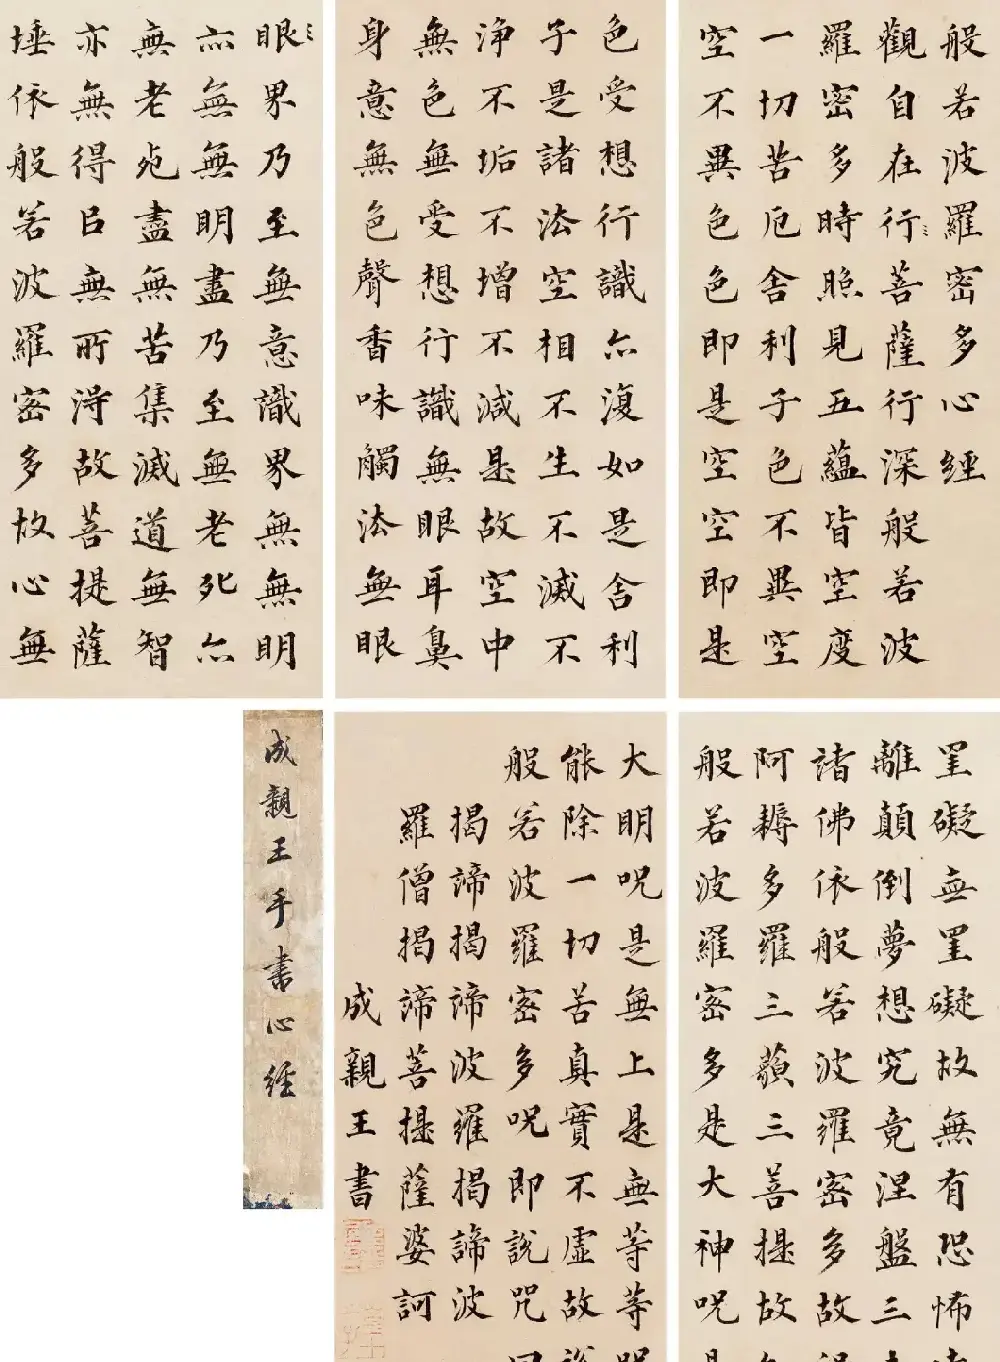 般若波羅密多心經
觀自在行菩薩行深般若波
羅密多時照見五蘊皆空度
一切苦厄舍利子色不異空
空不異色色即是空空即是
色受想行識亦復如是舍利
子是諸法空相不生不滅不
淨不垢不增不減是故空中
無色無受想行識無眼耳鼻
身意無色聲香味觸法無眼
眼界乃至無意識界無無明
亦無無明盡乃至無老死亦
無老死盡無苦集滅道無智
亦無得以無所得故菩提薩
埵依般若波羅密多故心無
罣礙無罣礙故無有恐怖
離顛倒夢想究竟涅盤三
諸佛依般若波羅密多故
阿耨多羅三藐三菩提故
般若波羅密多是大神呪
大明呪是無上是無等等
能除一切苦真實不虛故
般若波羅密多呪即說咒
揭諦揭諦波羅揭諦波
羅僧揭諦菩提薩婆訶
成親王書
成親王手書心經